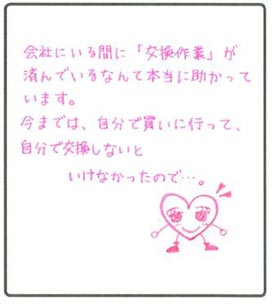 会社にいる間に「交換作業」が
済んでいるなんて本当に助かって
います。
今までは、自分で買いに行って、
自分で交換しないと
いけなかったので…。